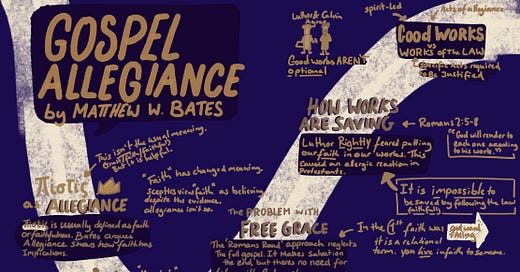 GOSPEL
ALLEGIANCE
by MATTHEW W. BATES
This isn't the usual meaning.
But it is helpful.
Pistis
as ALLEGIANCE
Pistis is usually defined as faith
or faithfulness. Bates argues
Allegiance shows how faith has
implications.
"Faith" has changed meaning.
Sceptics view faith as believing
despite the evidence.
allegiance isn't so.
Luther & Calvin
Agree
Good works AREN'T
optional
spirit-led
Acts of allegiance
Good WORKS
vs
WORKS of the LAW
specific works required
to be justified
HOW WORKS
ARE SAVING
Romans 2:5-8
"God will render to
each one according
to his works."
Luther Rightly feared putting
our faith in our works. This
caused an allergic reaction in
Protestants.
It is impossible to
be saved by following the law
faithfully
The PROBLEM WITH
FREE GRACE
The "Romans Road" approach neglects
The full gospel. It makes Salvation
the end, but there's no need for
In the 1st faith was
it is a relational
term. you give in faith to someone.
outward
facing